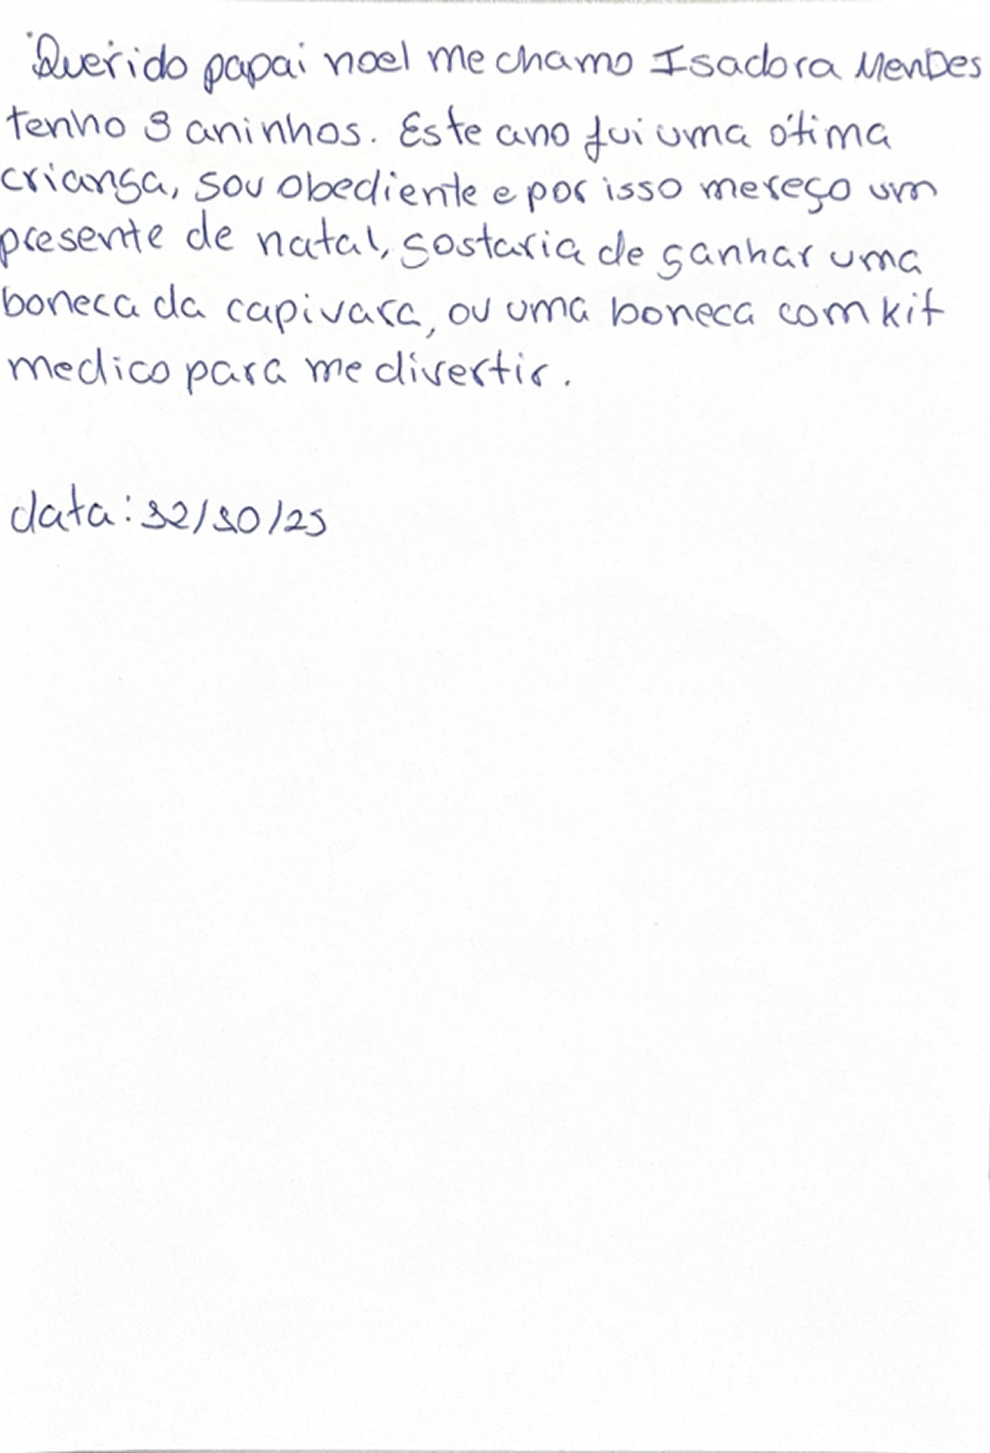 Querido papai noel me chamo Isadora Mendes
tenho 3 aninhos. Este ano fui uma ótima
criansa, sou obediente e por isso mereço um
presente de natal, gostaria de ganhar uma
boneca da capivara, ou uma boneca com kit
medico para me divertir.
data: 12/10/25